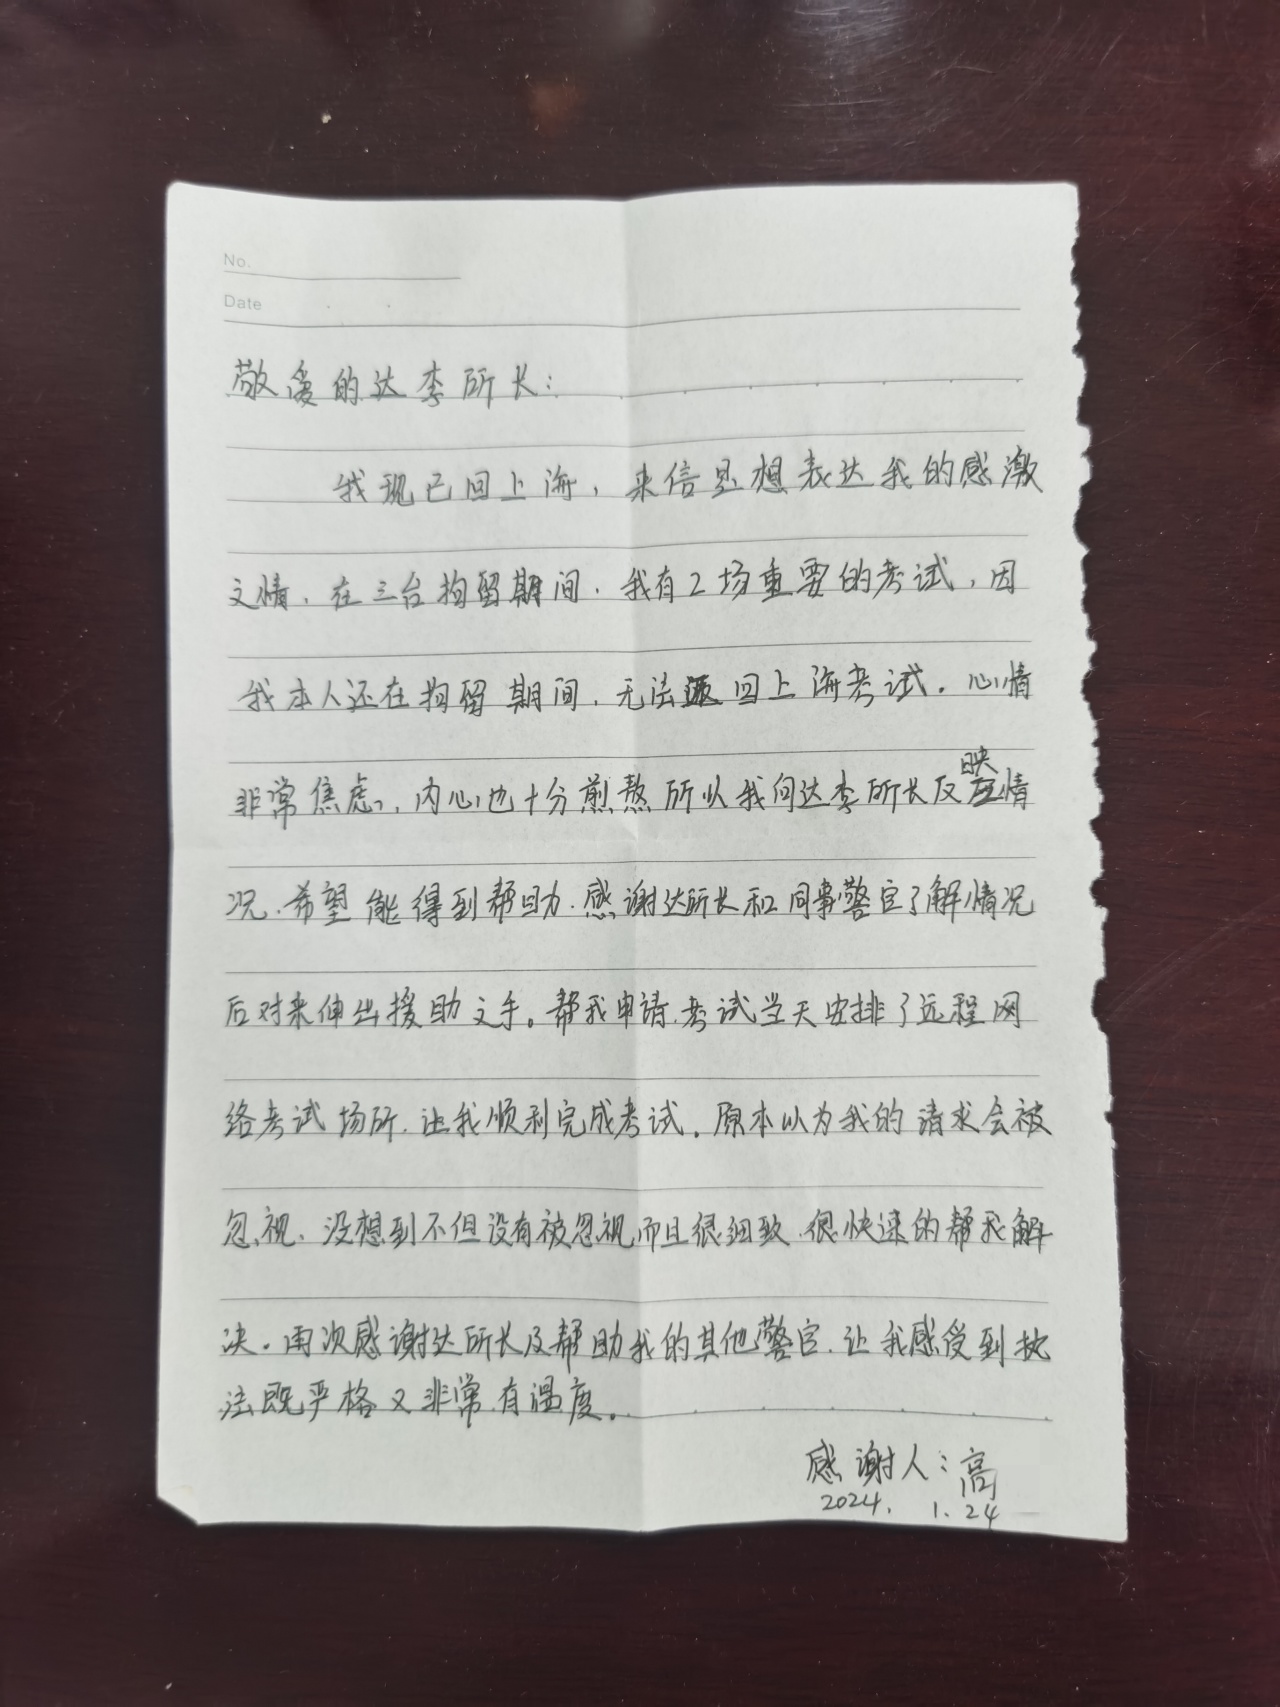 No.
Date
敬爱的达李所长：
我现已回上海，来信是想表达我的感激
之情，在三台拘留期间，我有2场重要的考试，因
我本人还在拘留期间，无法返回上海考试。心情
非常焦虑，内心也十分煎熬所以我向达李所长反映情
况，希望能得到帮助，感谢达所长和同事警官了解情况
后对来伸出援助之手。帮我申请，考试当天安排了远程网
络考试场所，让我顺利完成考试。原本以为我的请求会被
忽视，没想到不但没有被忽视而且很细致，很快速的帮我解
决。再次感谢达所长及帮助我的其他警官，让我感受到执
法既严格又非常有温度。
感谢人：高
2024. 1.24